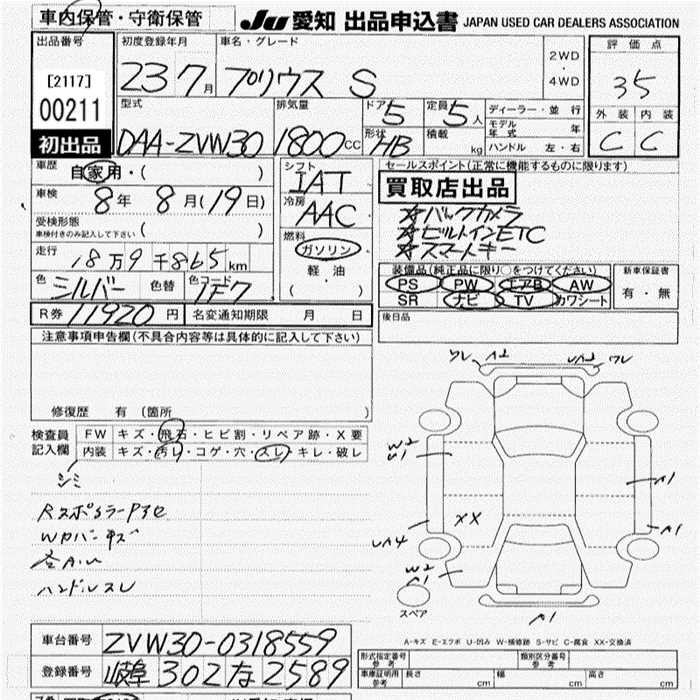 車内保管・守衛保管
JU 愛知 出品申込書 JAPAN USED CAR DEALERS ASSOCIATION
出品番号 初度登録年月 車名・グレード 2WD・4WD 評価点
[2117] 23 7月 プリウス S 35
00211
型式 排気量 ドア 5 定員 5人 ディーラー・並行 外装 内装
初出品 DAA-ZVW30 1800cc 形状 HB 積載 kg モデル年式 年 C C
ハンドル 左・右
車歴 自家用・( ) シフト IAT セールスポイント(正常に機能するものに限ります)
車検 8年 8月(19日) 冷房 AAC 買取店出品
受検形態 ( )
車検付きのみ記入して下さい
☆バックカメラ
☆ビルトインETC
☆スマートキー
走行 18万9千865km 燃料 ガソリン
軽油
( )
色 シルバー 色替 色コード 1F7
装備品(純正品に限り○をつけてください) 新車保証書
PS PW エアB AW 有・無
SR ナビ TV カワシート
R券 11920円 名変通知期限 月 日 後日品
注意事項申告欄(不具合内容等は具体的に記入して下さい)
修復歴 有(箇所 )
検査員記入欄 FW キズ・飛石・ヒビ割・リペア跡・X要
内装 キズ・汚レ・コゲ・穴・スレ・キレ・破レ
シミ
ハンドルスレ
ワレ A2 UA2 ワレ
W2
U1
A1
XX
UA4
A1
W2
A1
スペア
A1
A-キズ E-エクボ U-凹み W-補修跡 S-サビ C-腐食 XX-交換済
車台番号 ZVW30-0318559
登録番号 岐阜 302 な 2589
形式指定番号 参考 類別区分番号 参考
車庫証明用 参考 長さ cm 幅 cm 高さ cm